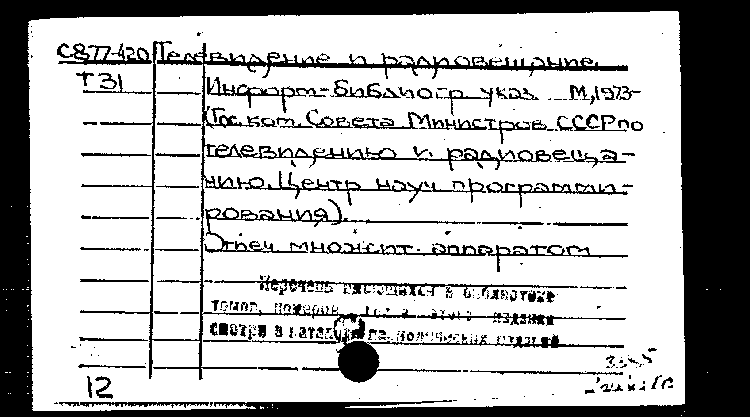 С877-420 Телевидение и радиовещание.
Т31 Информ-библиогр указ М, 1973-
(Гос. ком. Совета Министров СССР по
телевидению и радиовеща-
нию. Центр науч программи-
рования).
Отпеч множит. аппаратом
Перечень имеющихся в библиотеке
томов, номеров этого издания
смотри в каталоге
12